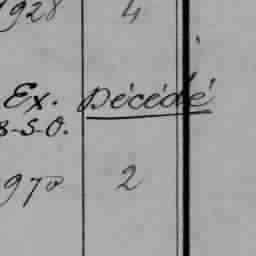 1928 4
Ex. Décédé
8-S-O.
970 2